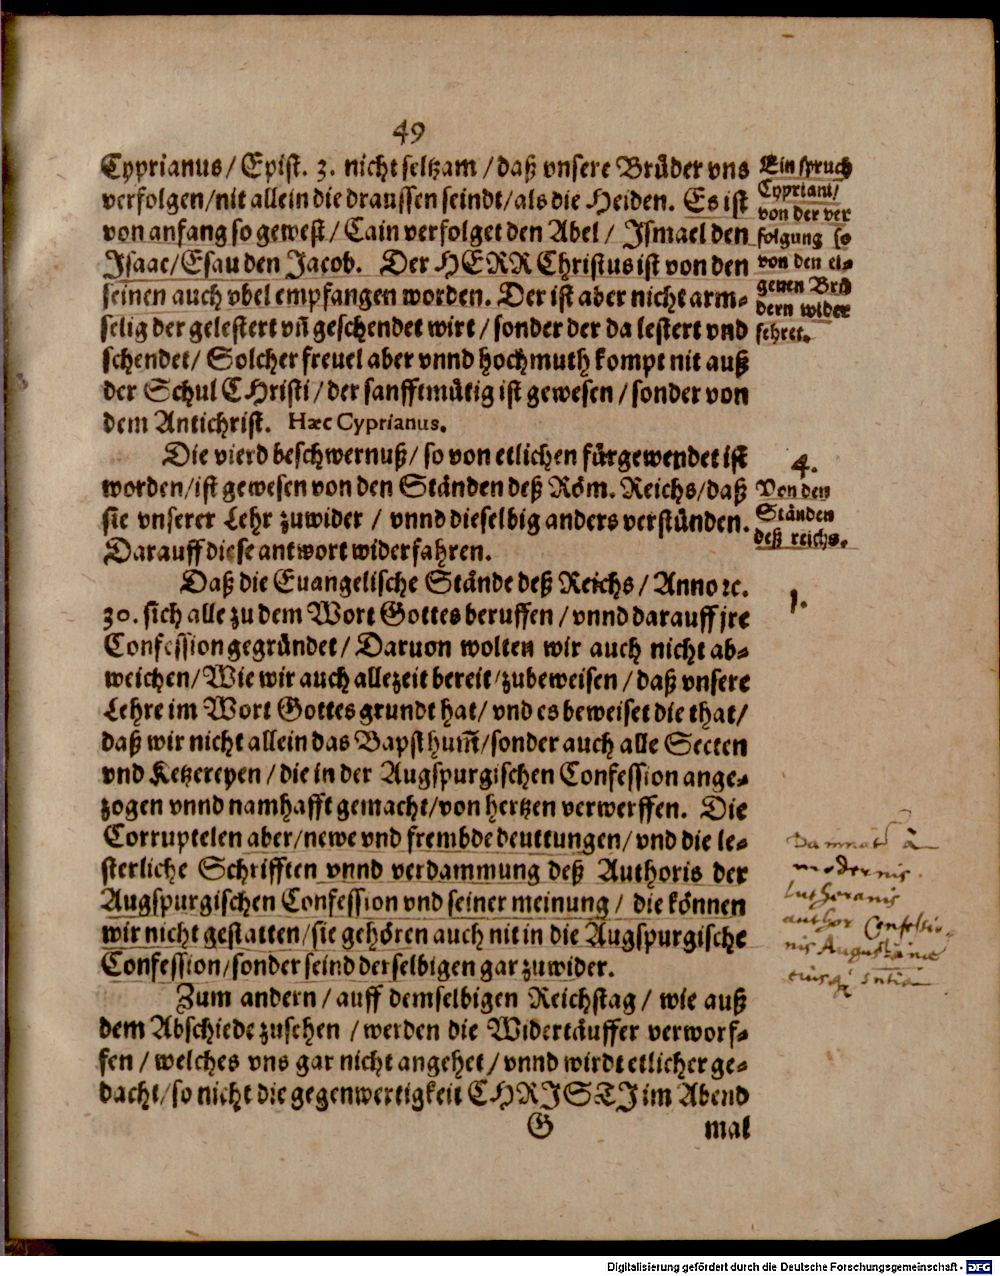 49
Cyprianus/ Epist. 3. nicht seltzam/ daß vnsere Brüder vns
verfolgen/ nit allein die draussen seindt/ als die Heiden. Es ist
von anfang so gewest/ Cain verfolget den Abel/ Ismael den
Isaac/ Esau den Jacob. Der HERR Christus ist von den
seinen auch vbel empfangen worden. Der ist aber nicht arm-
selig der gelestert vñ geschendet wirt/ sonder der da lestert vnd
schendet/ Solcher freuel aber vnnd hochmuth kompt nit auß
der Schul CHristi/ der sanfftmütig ist gewesen/ sonder von
dem Antichrist. Hæc Cyprianus.
Ein spruch
Cypriani/
von der ver
folgung so
von den ei-
genen Brü
dern wider
fehret.
Die vierd beschwernuß/ so von etlichen fürgewendet ist
worden/ ist gewesen von den Ständen deß Röm. Reichs/ daß
sie vnserer Lehr zuwider/ vnnd dieselbig anders verstünden.
Darauff diese antwort widerfahren.
4.
Von den
Ständen
deß reichs.
Daß die Euangelische Stände deß Reichs/ Anno ꝛc.
30. sich alle zu dem Wort Gottes beruffen/ vnnd darauff jre
Confession gegründet/ Daruon wolten wir auch nicht ab-
weichen/ Wie wir auch allezeit bereit/ zubeweisen/ daß vnsere
Lehre im Wort Gottes grundt hat/ vnd es beweiset die that/
daß wir nicht allein das Bapsthum̃/ sonder auch alle Secten
vnd Ketzereyen/ die in der Augspurgischen Confession ange-
zogen vnnd namhafft gemacht/ von hertzen verwerffen. Die
Corruptelen aber/ newe vnd frembde deuttungen/ vnd die le-
sterliche Schrifften vnnd verdammung deß Authoris der
Augspurgischen Confession vnd seiner meinung/ die können
wir nicht gestatten/ sie gehören auch nit in die Augspurgische
Confession/ sonder seind derselbigen gar zuwider.
1.
Damnat à
modernis
Lutheranis
author Confessio-
nis Augustanæ
Zum andern/ auff demselbigen Reichstag/ wie auß
dem Abschiede zusehen/ werden die Widertäuffer verworf-
fen/ welches vns gar nicht angehet/ vnnd wirdt etlicher ge-
dacht/ so nicht die gegenwertigkeit CHRISTI im Abend
G mal
Digitalisierung gefördert durch die Deutsche Forschungsgemeinschaft - DFG